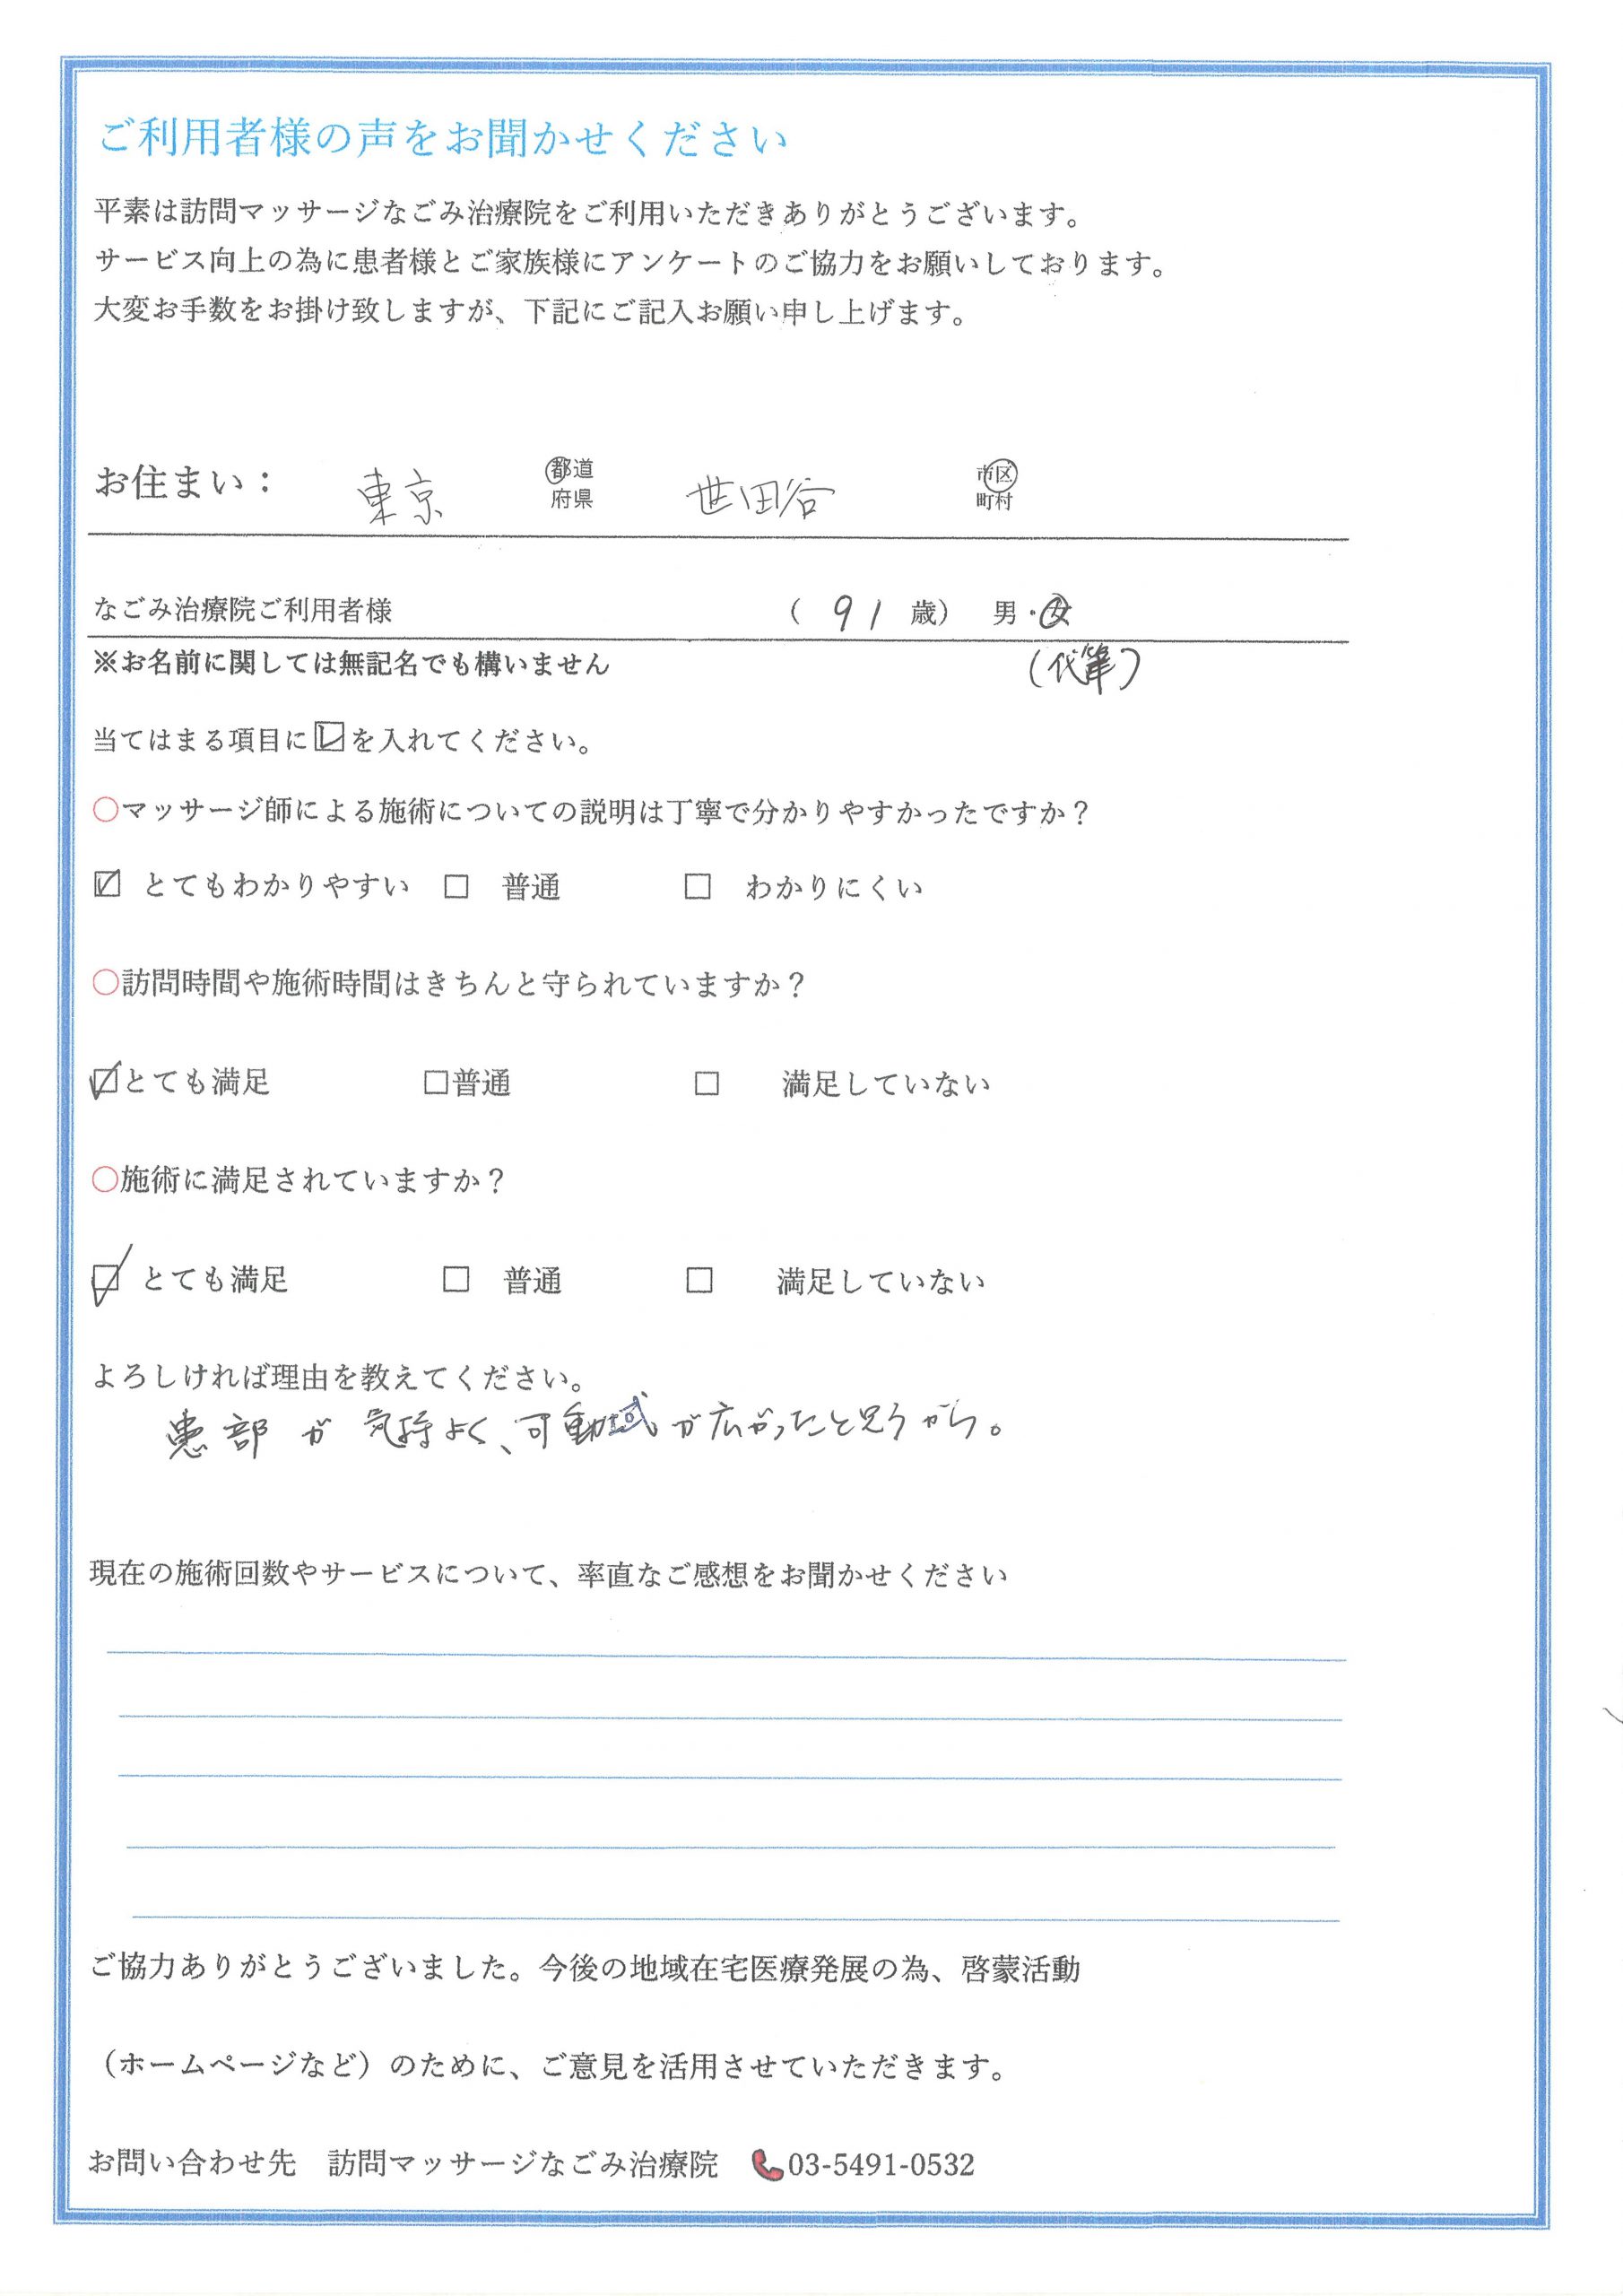 ご利用者様の声をお聞かせください
平素は訪問マッサージなごみ治療院をご利用いただきありがとうございます。
サービス向上の為に患者様とご家族様にアンケートのご協力をお願いしております。
大変お手数をお掛け致しますが、下記にご記入お願い申し上げます。
お住まい： 東京 都道府県 世田谷 市区町村
なごみ治療院ご利用者様 （ 91 歳） 男・女
※お名前に関しては無記名でも構いません （代筆）
当てはまる項目に☑を入れてください。
○マッサージ師による施術についての説明は丁寧で分かりやすかったですか？
☑ とてもわかりやすい □ 普通 □ わかりにくい
○訪問時間や施術時間はきちんと守られていますか？
☑とても満足 □普通 □ 満足していない
○施術に満足されていますか？
☑ とても満足 □ 普通 □ 満足していない
よろしければ理由を教えてください。
患部が気持よく、可動域が広がったと思うから。
現在の施術回数やサービスについて、率直なご感想をお聞かせください
ご協力ありがとうございました。今後の地域在宅医療発展の為、啓蒙活動
（ホームページなど）のために、ご意見を活用させていただきます。
お問い合わせ先 訪問マッサージなごみ治療院 📞03-5491-0532